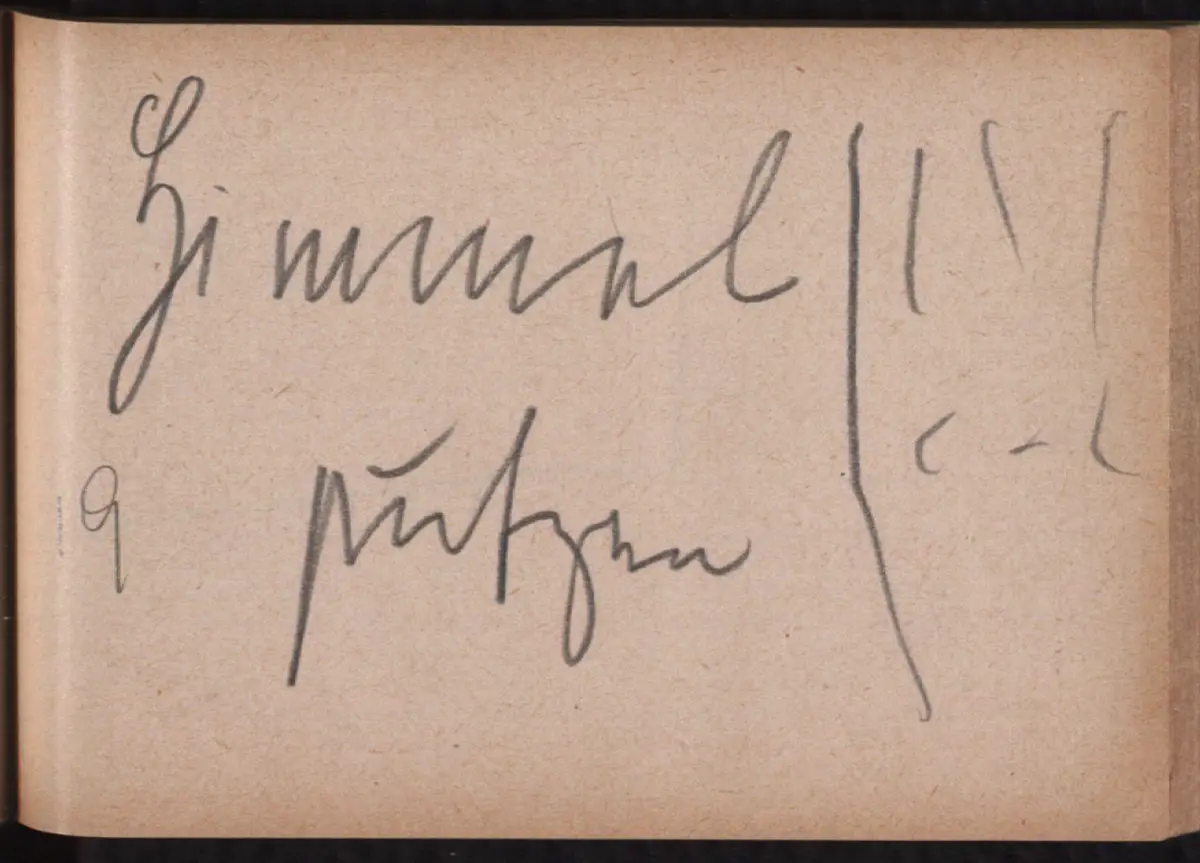 Himmel
9 putzen